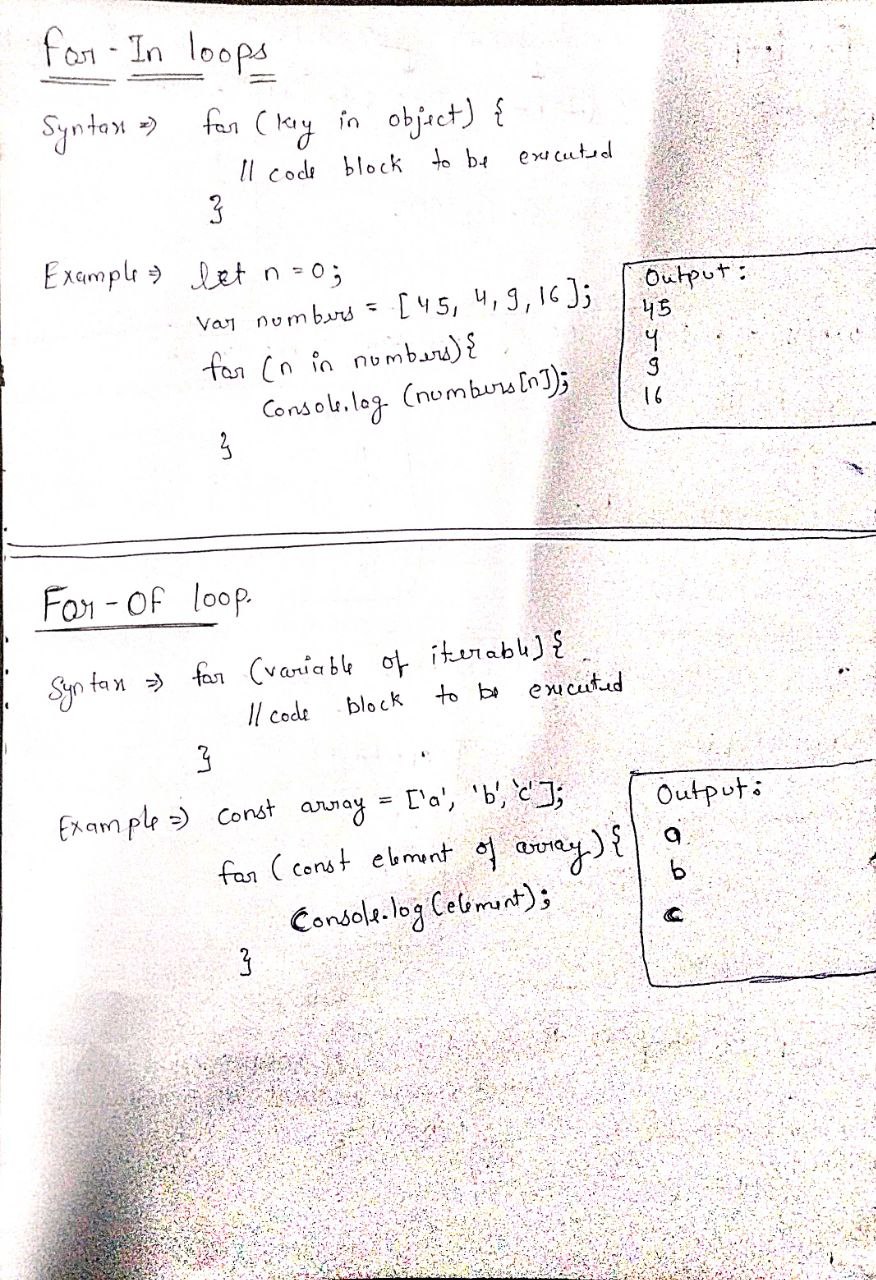 For-In loops
Syntax ⇒ for (key in object) {
// code block to be executed
}
Example ⇒ let n = 0;
var numbers = [45, 4, 9, 16];
for (n in numbers){
Console.log (numbers[n]);
}
Output:
45
4
9
16
For-Of loop.
Syntax ⇒ for (variable of iterable) {
// code block to be executed
}
Example ⇒ const array = ['a', 'b', 'c'];
for (const element of array) {
Console.log (element);
}
Output:
a
b
c